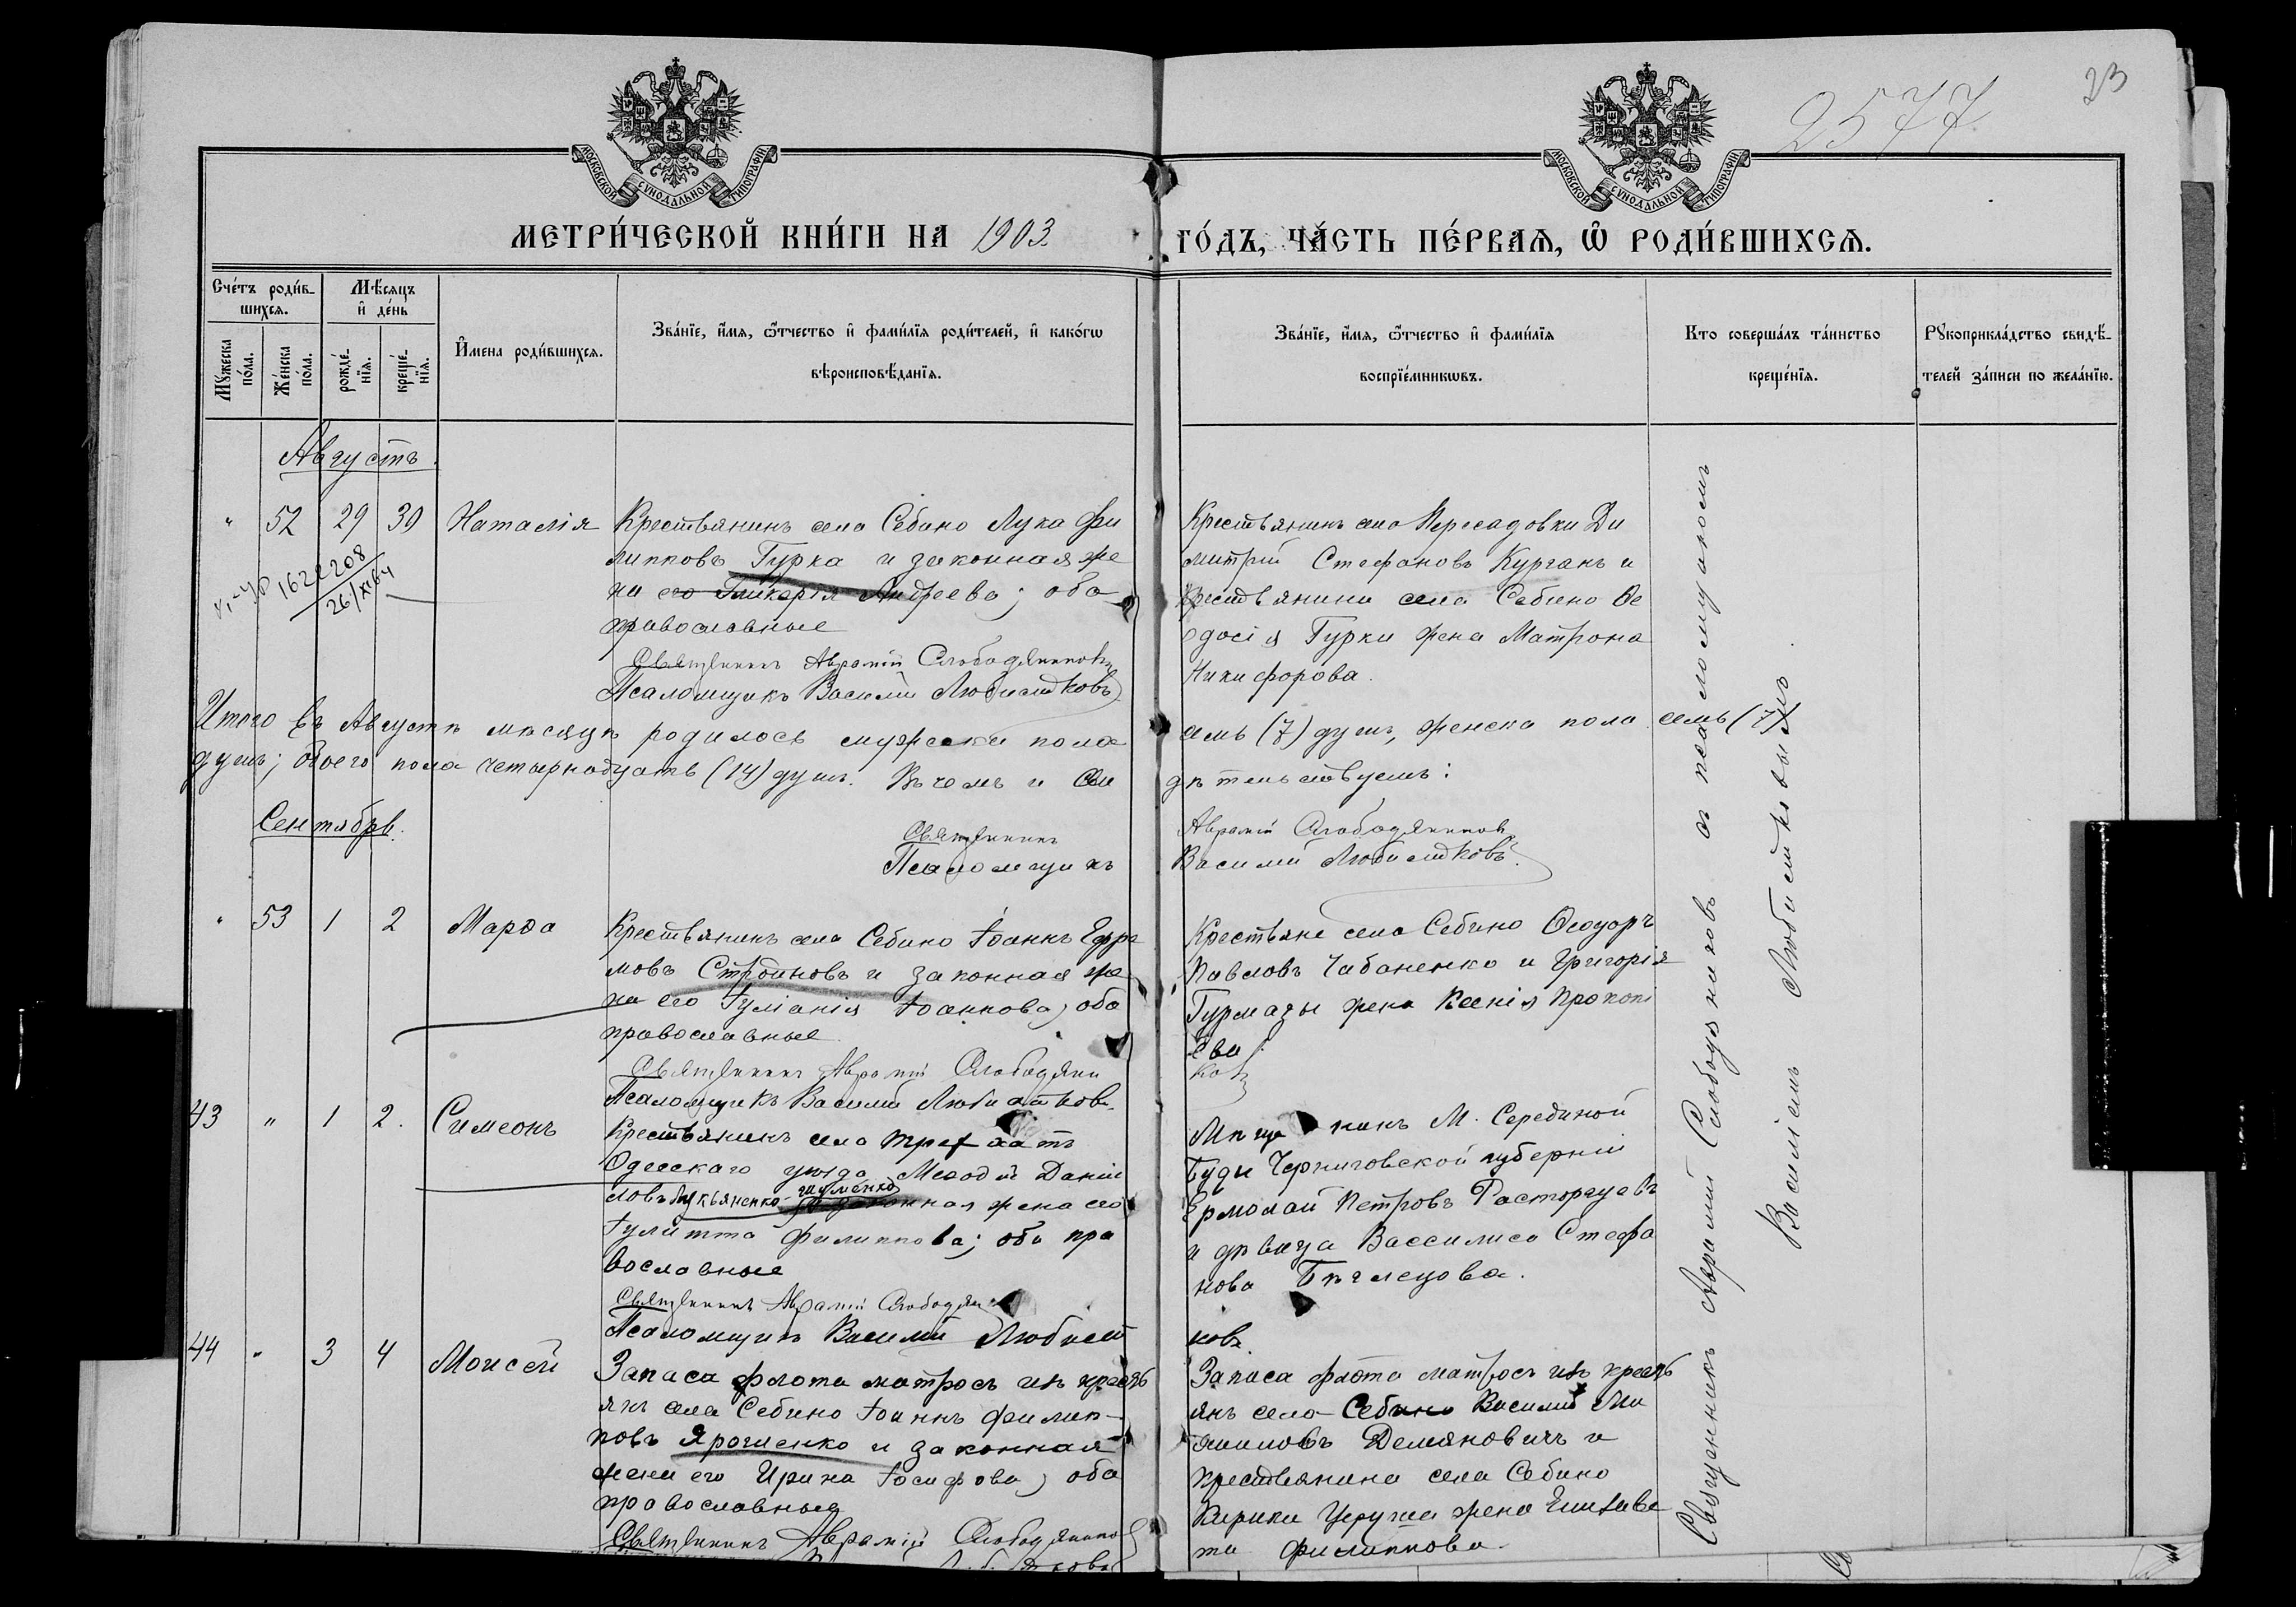 2577
23
МОСКОВСКОЙ СѴНОДАЛЬНОЙ ТИПОГРАФІИ
МОСКОВСКОЙ СѴНОДАЛЬНОЙ ТИПОГРАФІИ
МЕТРИ́ЧЕСКОЙ КНИ́ГИ НА 1903.
ГО́ДЪ, ЧА́СТЬ ПЕ́РВАЯ, Ѡ҆ РОДИ́ВШИХСЯ.
Сче́тъ роди́в-
шихся.
Мѣ́сяцъ
и҆ де́нь
Мꙋ́жеска
по́ла.
Же́нска
по́ла.
рожде́-
нїя.
креще́-
нїя.
И҆мена роди́вшихся.
Зва́нїе, и҆́мя, ѻ҆́тчество и҆ фами́лїя роди́телей, и҆ како́гѡ
вѣроисповѣ́данїя.
Зва́нїе, и҆́мя, ѻ҆́тчество и҆ фами́лїя
воспрїе́мникѡвъ.
Кто соверша́лъ та́инство
креще́нїя.
Рꙋкоприкла́дство свидѣ́-
телей за́писи по жела́нїю.
Августъ
" 52 29 30 Наталія
1622208
26/XI64
Крестьянинъ села Себино Лука Фи
липповъ Гурка и законная же
на его Гликерія Андреева; оба
православные
Священникъ Аврамій Слободянниковъ
Псаломщикъ Василій Любистковъ
Крестьянинъ села Пересадовки Ди
митрій Стефановъ Курганъ и
крестьянина села Себино Ѳе
одосія Гурки жена Матрона
Никифорова.
Итого въ Августѣ мѣсяцѣ родилось мужеска пола
семь (7) душъ, женска пола семь (7)
душъ; обоего пола четырнадцать (14) душъ. Въ чемъ и сви
дѣтельствуемъ:
Сентябрь.
Священникъ
Аврамій Слободянников
Псаломщикъ
Василій Любистковъ.
" 53 1 2 Марѳа
Крестьянинъ села Себино Іоаннъ Ефре
мовъ Стродновъ и законная же
на его Іуліанія Іоаннова; оба
православные
Священникъ Аврамій Слободянни
Псаломщикъ Василій Любистков.
Крестьяне села Себино Ѳеодоръ
Павловъ Чабаненко и Григорія
Гурмазы жена Ксенія Прокопі
ева.
ковъ
43 " 1 2. Симеонъ
Крестьянинъ села Трехаатъ
Одесскаго уѣзда Меѳодій Даніи
ловъ Лукьяненко законная жена его
Іулитта Филиппова; оба пра
вославные
Священникъ Аврамій Слободян
Псаломщикъ Василій Любист
Мѣщанинъ М. Серединой
Буды Черниговской губерніи
Ермолай Петровъ Расторгуевъ
и дѣвица Вассилиса Стефа
нова Бѣглецова.
ковъ.
44 " 3 4 Моисей
Запаса флота матросъ изъ кресть
янъ села Себино Іоаннъ Филип-
повъ Ярошенко и законная
жена его Ирина Іосифова; оба
православные
Священникъ Аврамій Слободяннико
Запаса флота матросъ изъ кресть
янъ села Себино Василій
Демяновичъ и
крестьянина села Себино
Кирики Цуруша жена Елисаве
та Филиппова.
Священникъ Аврамій Слободяниковъ съ псаломщикомъ
Василіемъ Любистковымъ.